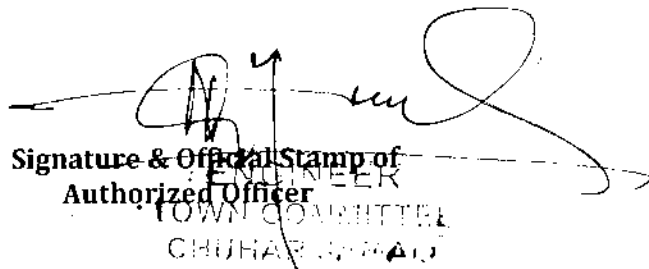 Signature & Official Stamp of
Authorized Officer
ENGINEER
TOWN COMMITTEE
CHUHAR JAMALI